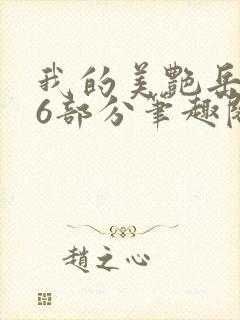 我的美艷岳
6部分筆趣閣
趙之心